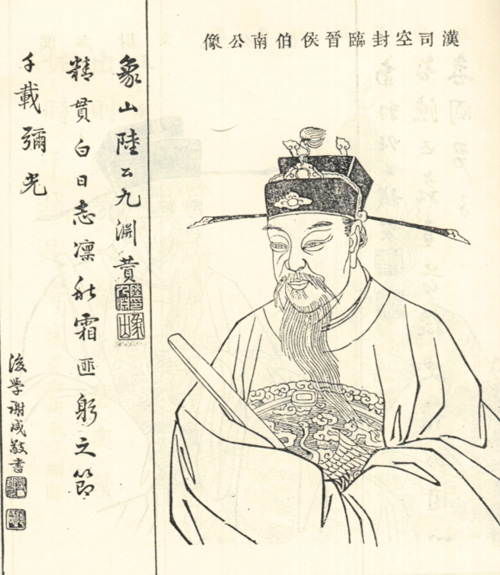 漢司空封臨晉侯伯南公像
象山陸公九淵贊
精貫白日志凛秋霜匪躬之節
千載彌光
後學謝敬書